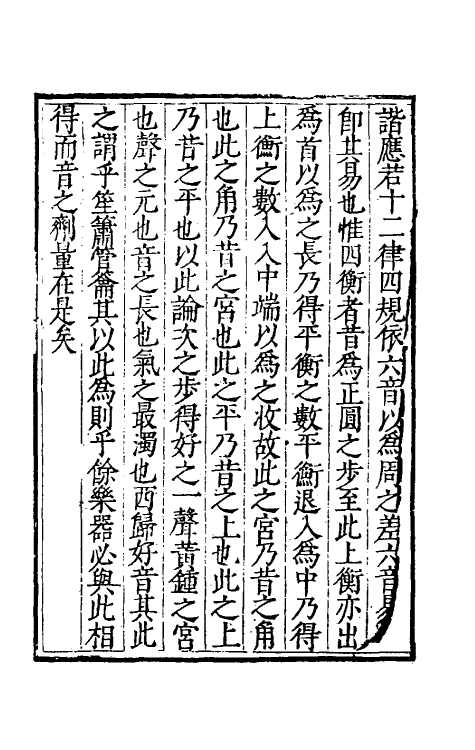 諧應若十二律四規依六音以爲周之差六音
即其易也惟四衡者昔爲正圓之步至此上衡亦出
爲首以爲之長乃得平衡之數平衡退入爲中乃得
上衡之數入入中端以爲之收故此之宮乃昔之角
也此之角乃昔之宮也此之平乃昔之上也此之上
乃昔之平也以此論次之步得好之一聲黃鍾之宮
也聲之元也音之長也氣之最濁也西歸好音其此
之謂乎笙簫管龠其以此爲則乎餘樂器必與此相
得而音之劑量在是矣